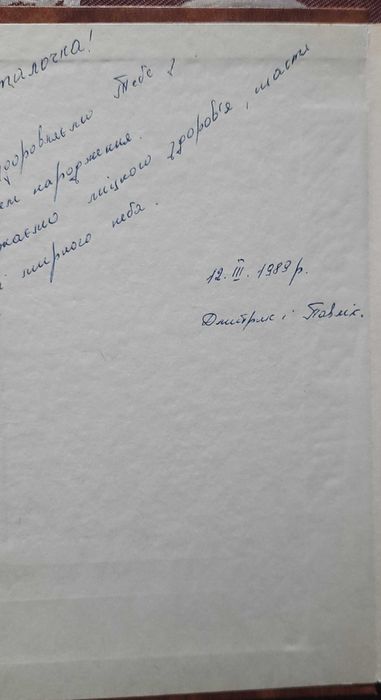 талочка!
здоровляємо Тебе з
ем народження.
жаємо міцкого здоров'я, щастя
і мирного неба.
12. III. 1989 р.
Дмитрик і Павлік.